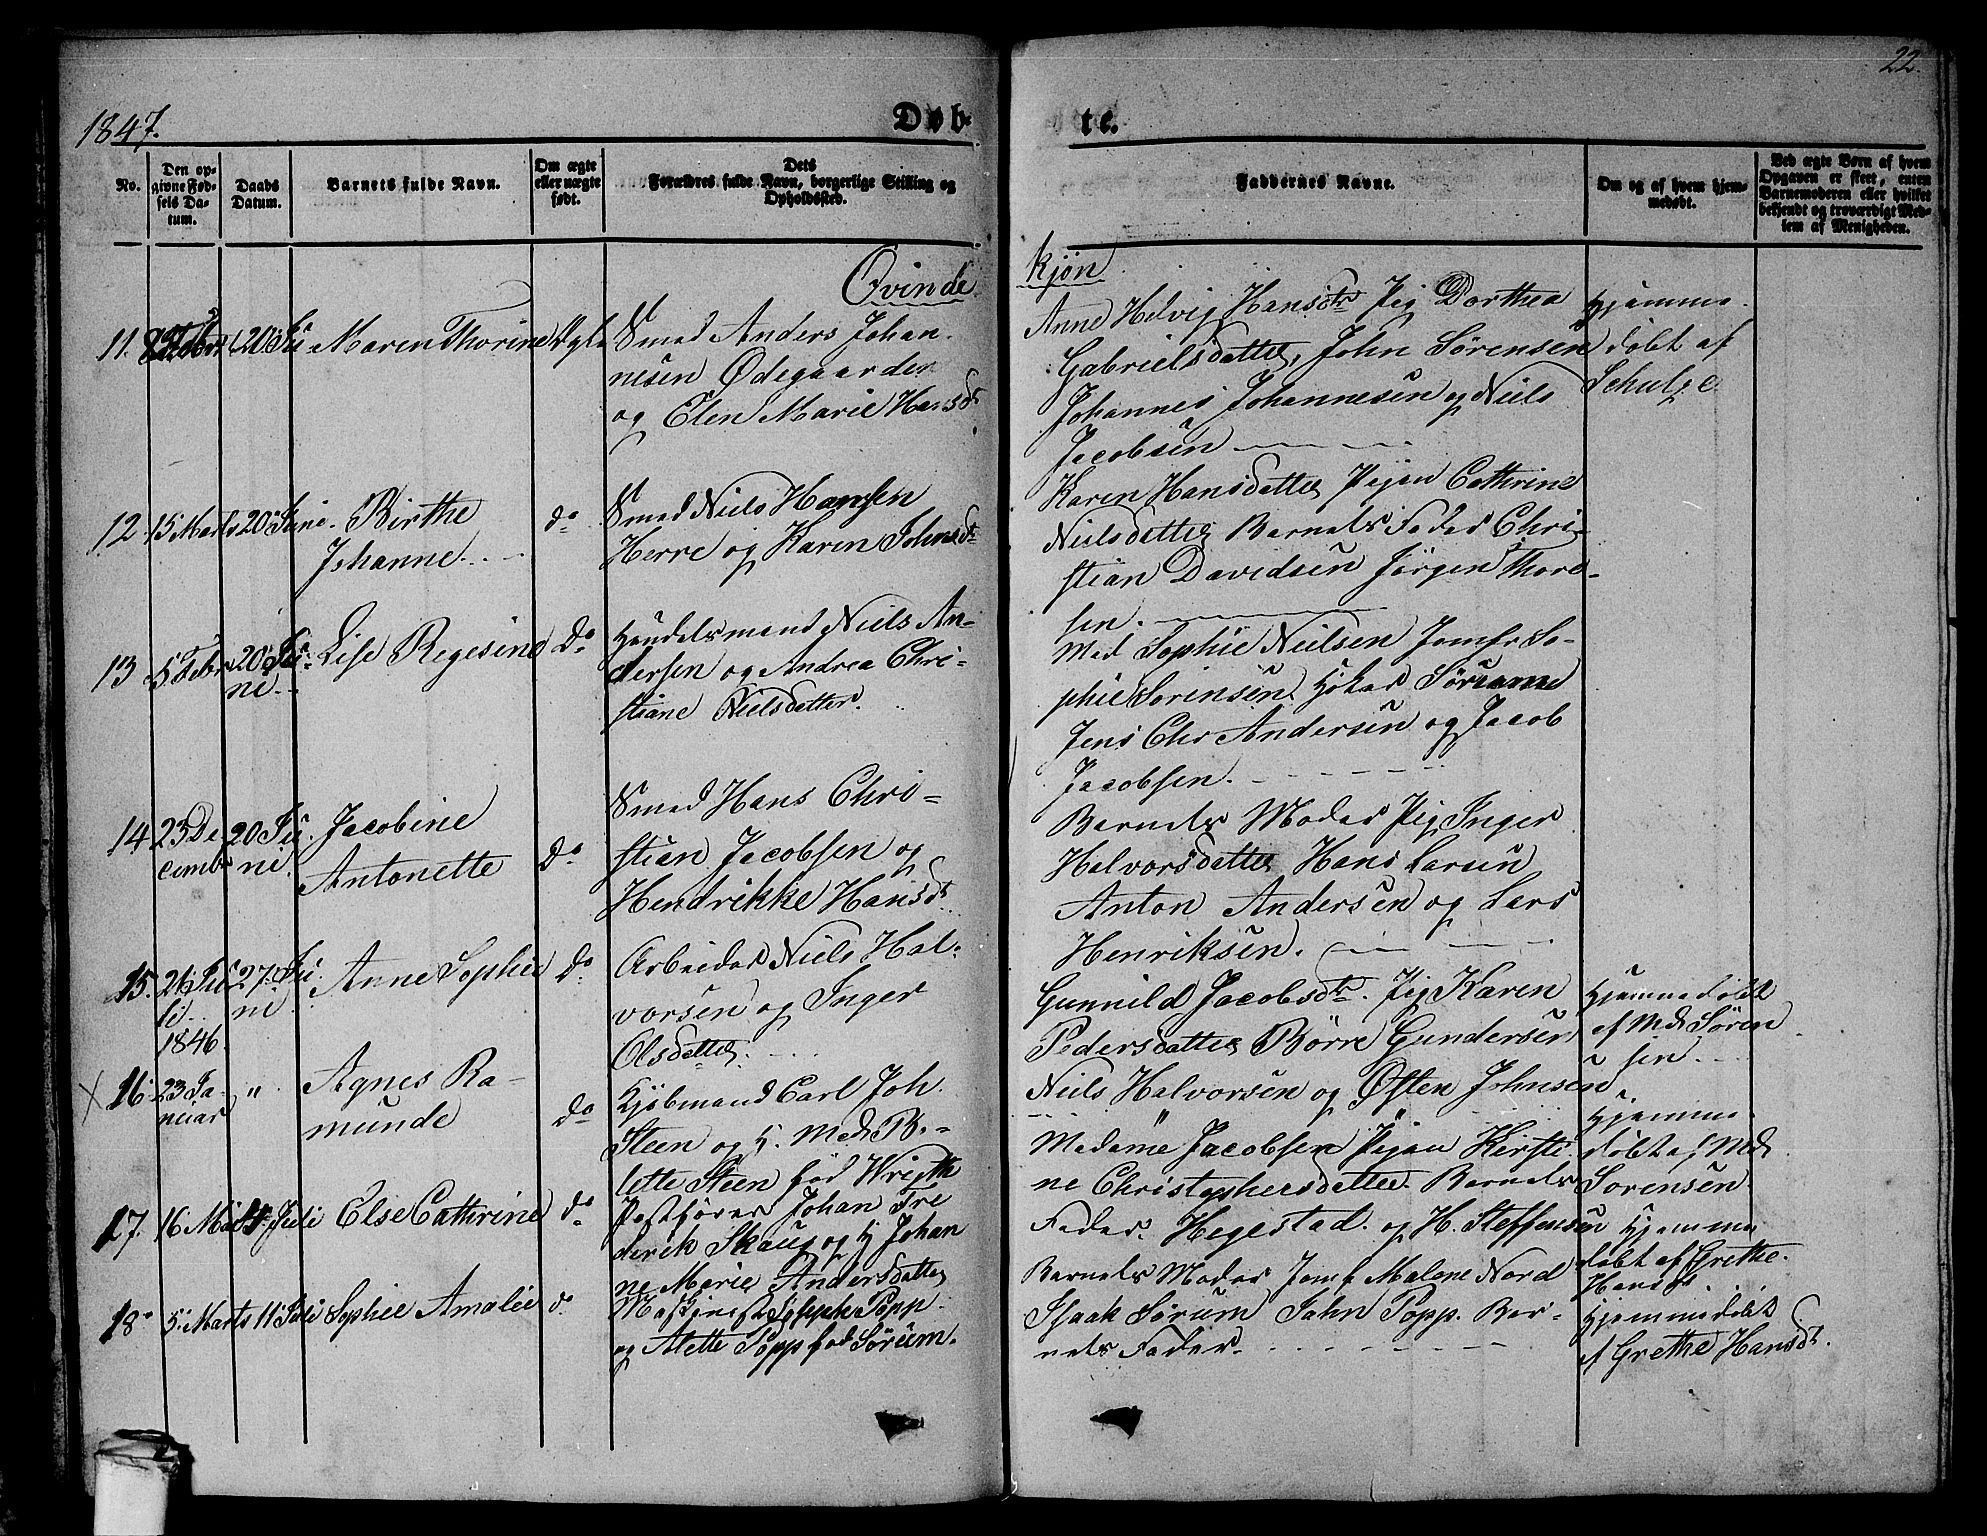 22.
1847.
Døb-
te.
No.
Den op-
givne Fød-
sels Da-
tum.
Daabs
Datum.
Barnets fulde Navn.
Om ægte
eller uægte
født.
Dets
Forældres fulde Navn, borgerlige Stilling og
Opholdssted.
Faddernes Navne.
Om og af hvem hjem-
medøbt.
Ved ægte Børn af hvem
Opgaven er skeet, enten
Barnemoderen eller hvilket
bekjendt og troværdigt Med-
lem af Menigheden.
Qvinde
kjøn
11. 20 Ju Maren Thorine Ægte
Smed Anders Johan-
nesen Ødegaarden
og Elen Marie Hansdtr
Anne Helvig Hansdtr Pig Dorthea
Gabrielsdatter, John Sørensen
Johannes Johannesen og Niels
Jacobsen
Hjemme-
døbt af
Schulze
12. 15 Marts 20 Juni. Birthe
Johanne.
do
Smed Niels Hansen
Herre og Karen Johnsdtr
Karen Hansdatter Pigen Cathrine
Nielsdatter Barnets Fader Chri-
stian Davidsen Jørgen Thore-
sen.
13 5 Febr 20 Ju-
ni
Lise Regesine
do
Handelsmand Niels An-
dersen og Andrea Chri-
stiane Nielsdatter.
Mad Sophie Nielsen Jomfr So-
phie Sørensen. Høker
Jens Chr Andersen og Jacob
Jacobsen.
14 23 De
cembr
20 Ju
ni.
Jacobine
Antonette
do
Smed Hans Chri-
stian Jacobsen og
Hendrikke Hansdt
Barnets Moder Pig Inger
Halvorsdatter Hans Larsen
Anton Andersen og Lars
Henriksen.
15. 21 Ju
li
1846.
27 Ju
ni
Anne Sophie
do
Arbeider Niels Hal-
vorsen og Inger
Olsdatter.
Gunnild Jacobsdtr. Pig Karen
Pedersdatter Børre Gundersen
Niels Halvorsen og Østen Johnsen
Hjemmedøbt
af Md Søren
sen
16. 23 Ja-
nuar
"
Agnes Ra-
munde
do
Kjøbmand Carl Joh.
Steen og H. Md B.-
lette Steen fød Wrigth
Madame Jacobsen Pigen Kirsti
ne Christophersdatter. Barnets
Fader. Hegestad. og H. Steffensen
Hjemme-
døbt af Md
Sorensen
17. 16 Mai 4 Juli Else Cathrine do
Postfører Johan Fre
derik Skaug og H Johan
ne Marie Andersdatter
Barnets Moder Jomf Malene Nord
Hjemme
døbt af Grethe
Hansdt
18 5 Marts 11 Juli Sophie Amalie do
Popp.
og Alette Popp fød Sørum.
Isaak Sørum John Popp. Bar-
nets Fader.
Hjemmedøbt
af Grethe Hansdt.